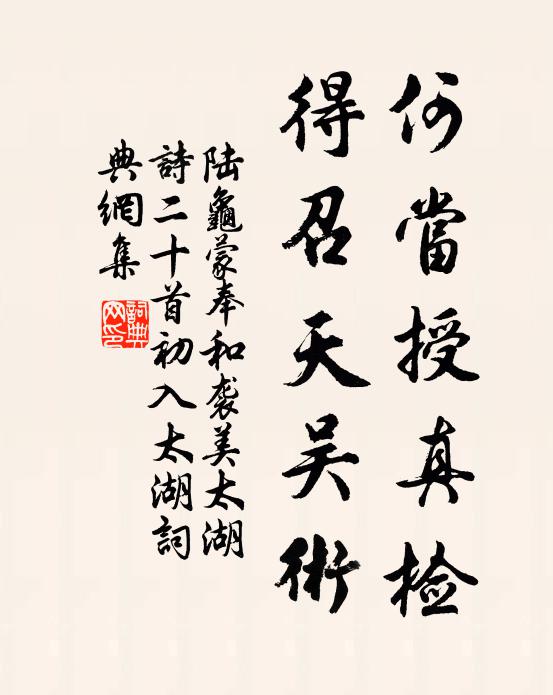 何當授真检
得召天吴術
陆龜蒙奉和袭美太湖
詩二十首初入太湖詞
典網集
詞典
网印